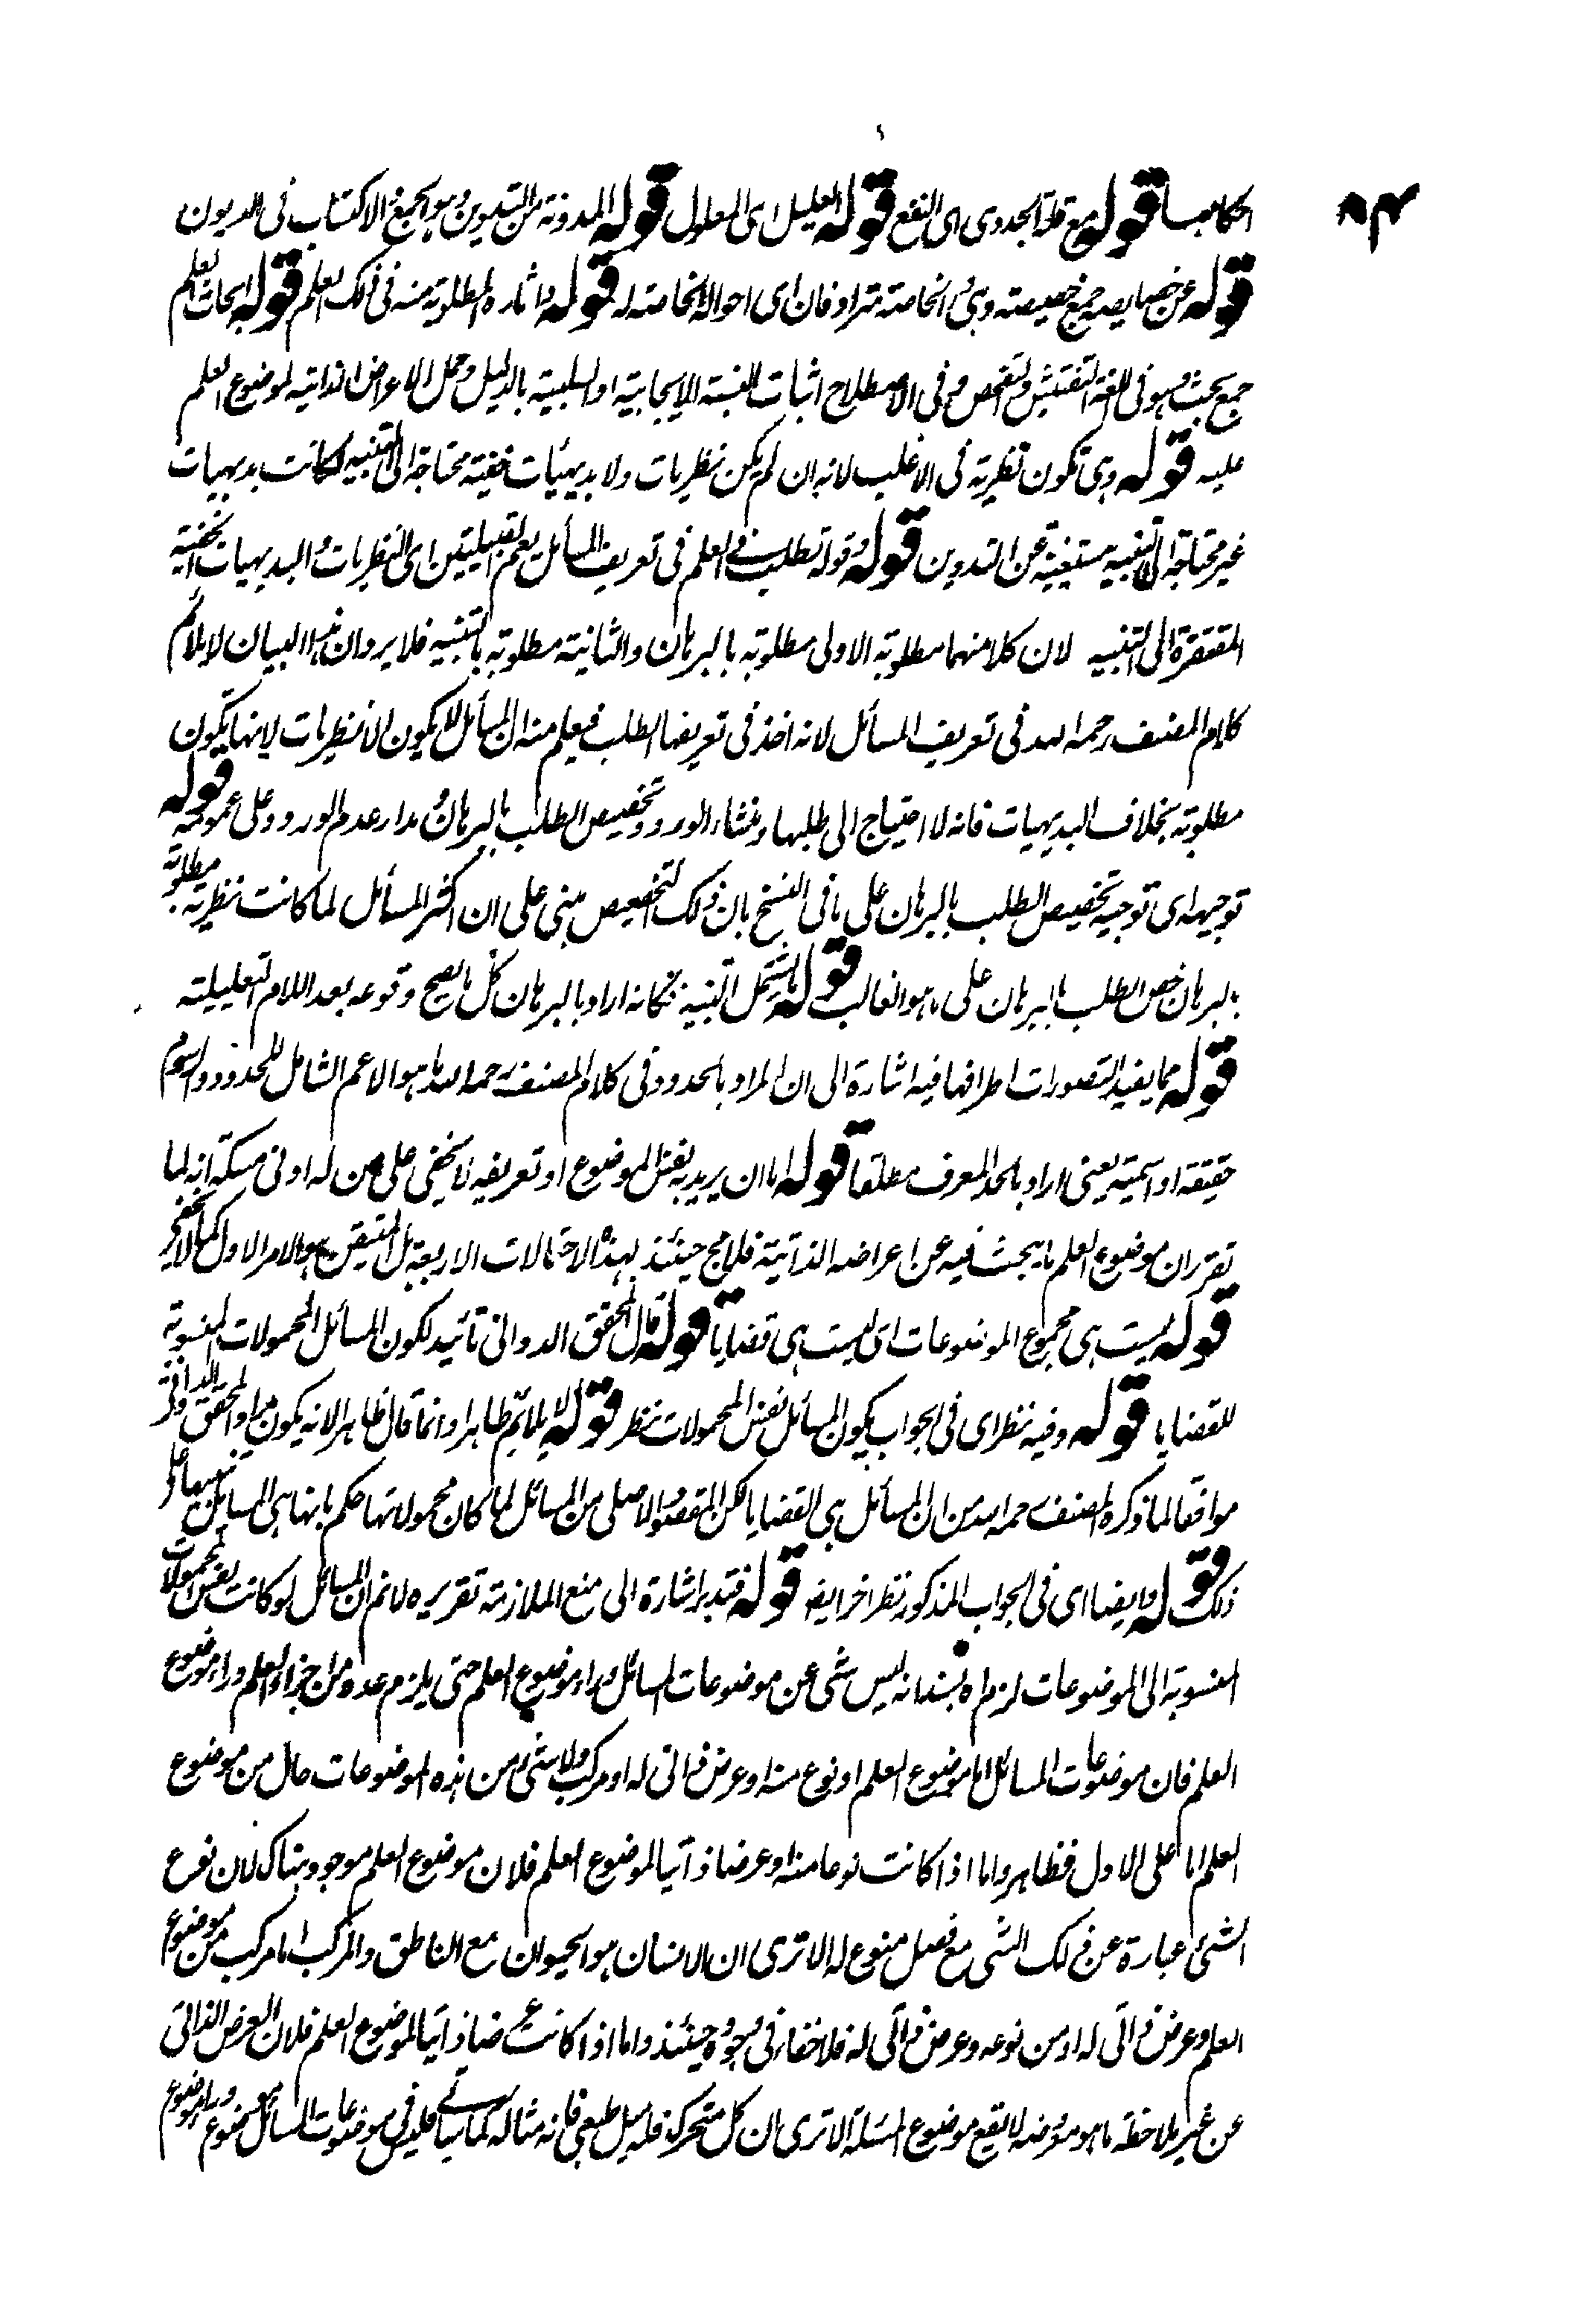 الكاسب قوله مع قلة الجدوى اى النفع قوله العليل اى المعلول قوله المدونة من التدوين وهو الجمع والاكتتاب فى الديون
قوله عن خصايصه جمع خصيصته وهى الخاصة مترادفان اى احواله الخاصة له قوله واثاره المطلوبة منه فى ذلك العلم قوله ابحاث العلم
جمع بحث وهو فى اللغة التفتيش والتفحص وفى الاصطلاح اثبات النسبة الايجابية او السلبية بالدليل وحمل الاعراض الذاتية لموضوع العلم
عليه قوله وهى تكون نظرية فى الاغلب لانه ان لم يكن نظريات ولا بديهيات خفية محتاجة الى التنبيه لكانت بديهيات
غير محتاجة الى التنبيه مستغنية عن التدوين قوله وقوله تطلب فى العلم فى تعريف المسأئل يعم القبيلتين اى النظريات والبديهيات الخفية
المفتقرة الى التنبيه لان كلا منهما مطلوبة الاولى مطلوبة بالبرهان والثانية مطلوبة بالتنبيه فلا يرد ان هذا البيان لا يلائم
كلام المصنف رحمه الله فى تعريف المسأئل لانه اخذ فى تعريفها الطلب فيعلم منه ان المسأئل لا يكون الا نظريات لانها يكون
مطلوبة بخلاف البديهيات فانه لا احتياج الى طلبها ومنشاء الورود تخصيص الطلب بالبرهان ومدار عدم الورود على عمومه قوله
توجيهه اى توجيه تخصيص الطلب بالبرهان على ما فى النسخ بان ذلك التخصيص مبنى على ان اكثر المسأئل لما كانت نظرية مطلوبة
بالبرهان خص الطلب بالبرهان على ما هو الغالب قوله ما يشتمل التنبيه فكانه اراد بالبرهان كل ما يصح وقوعه بعد اللام التعليلية
قوله مما يفيد التصورات اطرافها فيه اشارة الى ان المراد بالحدود فى كلام المصنف رحمه الله ما هو الاعم الشامل للحدود والرسوم
حقيقة او اسمية يعنى اراد بالحد المعرف مطلقا قوله اما ان يريد به نفس الموضوع او تعريفه لا يخفى على من له ادنى مسكة انه لما
تقرر ان موضوع العلم ما يبحث فيه عن اعراضه الذاتية فلا مج حينئذ بهذه الاحتمالات الاربعة بل المتيقن هو الامر الاول كما لا يخفى
قوله ليست هى مجموع الموضوعات اى ليست هى قضايا قوله قال المحقق الدوانى تائيد لكون المسائل المحمولات المنسوبة
للقضايا قوله وفيه نظر اى فى الجواب بكون المسأئل نفس المحمولات نظر قوله لا يلائم ظاهرا وانما قال ظاهرا لانه يكون مراد المحقق الدوانى
موافقا لما ذكره المصنف رحمه الله من ان المسأئل هى القضايا لكن المقصود الاصلى من المسائل لما كان محمولاتها حكم بانها هى المسايل تنبيها على
ذلك قوله وايضا اى فى الجواب المذكور نظر اخر ايضا قوله فتدبر اشارة الى منع الملازمة تقريره لا نم ان المسائل لو كانت نفس المحمولات
المنسوبة الى الموضوعات لزم اه بسند انه ليس شى عن موضوعات المسائل وراء موضوع العلم حتى يلزم عده من اجزاء العلم وراء موضوع
العلم فان موضوعات المسائل اما موضوع العلم او نوع منه او عرض ذاتى له او مركب ولا شئ من هذه الموضوعات خال من موضوع
العلم اما على الاول فظاهر واما اذا كانت نوعا منه او عرضا ذاتيا لموضوع العلم فلان موضوع العلم موجود هناك لان نوع
الشئ عبارة عن ذلك الشى مع فصل منوع له الا ترى ان الانسان هو الحيوان مع الناطق والمركب اما مركب من موضوع
العلم وعرض ذاتى له او من نوعه وعرض ذاتى له فلا خفاء فى وجوده حينئذ واما اذا كانت عرضا ذاتيا لموضوع العلم فلان العرض الذاتى
عن غير ملاحظة ما هو معروضه لا يقع موضوع المسئلة الا ترى ان كل متحرك فله ميل طبعى فانه مثاله كما سياتى فليس فى موضوعات المسائل موضوع وراء موضوع